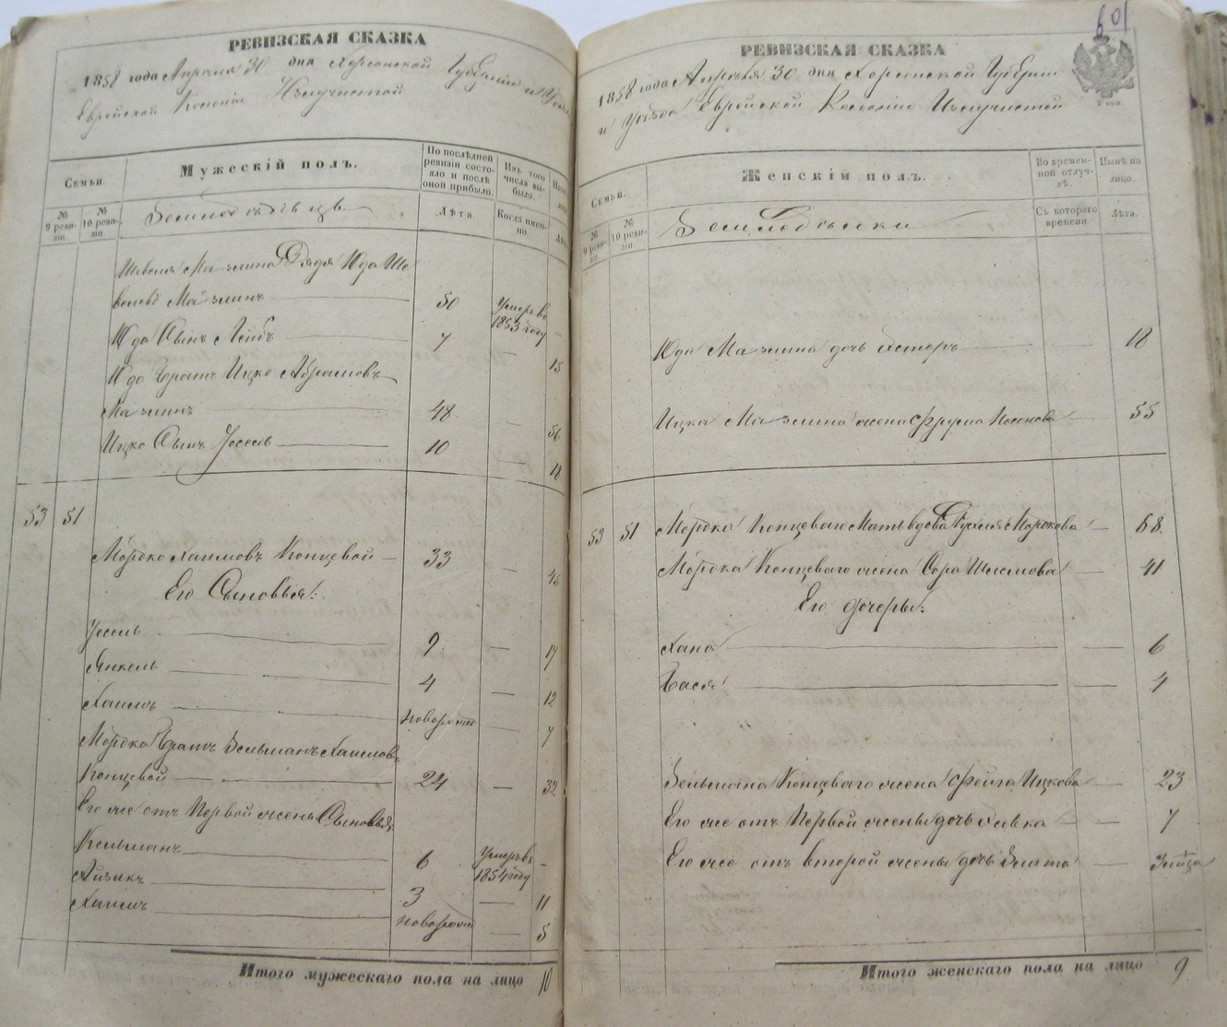 РЕВИЗСКАЯ СКАЗКА
1858 года Апреля 30 дня Херсонской Губерніи и Уезда
Еврейской Колоніи Излучистой
Семьи.
Мужескій полъ.
По послѣдней ревизіи состояло и послѣ оной прибыло.
Изъ того числа выбыло.
№ 9 ревизіи.
№ 10 ревизіи.
Земледѣльцы
Лѣта.
Когда именно.
Мазлина Дядя Юда
Мазлинъ 50 Умеръ въ 1853 году
Юда Сынъ Лейбъ 7 15
Юда Братъ Ицко Абрамовъ
Мазлинъ 48 56
Ицко Сынъ Іосель 10 18
53 51
Мордко Хаимовъ Концевой 33
Его Сыновья:
Іосель 9 17
Янкель 4 12
Хаимъ Новорожд 7
Мордко Братъ Зельманъ Хаимовъ
Концевой 24 32
Его же отъ Первой жены Сыновья:
Кельманъ 6 Умеръ въ 1854 году
Айзикъ 3 11
Хаимъ Новорожд 5
Итого мужескаго пола на лицо 10
601
РЕВИЗСКАЯ СКАЗКА
1858 года Апреля 30 дня Херсонской Губерніи
и Уезда Еврейской Колоніи Излучистой
Семьи.
Женскій полъ.
Во временной отлучкѣ.
Нынѣ на лицо.
№ 9 ревизіи.
№ 10 ревизіи.
Земледѣлки
Съ котораго времени
Лѣта.
Юда Мазлина дочь Эстеръ 18
Ицка Мазлина жена Фрума Носенова 55
53 51 Мордка Концеваго Мать вдова Мордкова 68
Мордка Концеваго жена Сора Шлемова 41
Его дочеры:
Хана 6
Бася 4
Зельмана Концеваго жена Фейга Ицкова 23
Его же отъ Первой жены дочь Хивка 7
Его же отъ второй жены дочь Злата
Итого женскаго пола на лицо 9